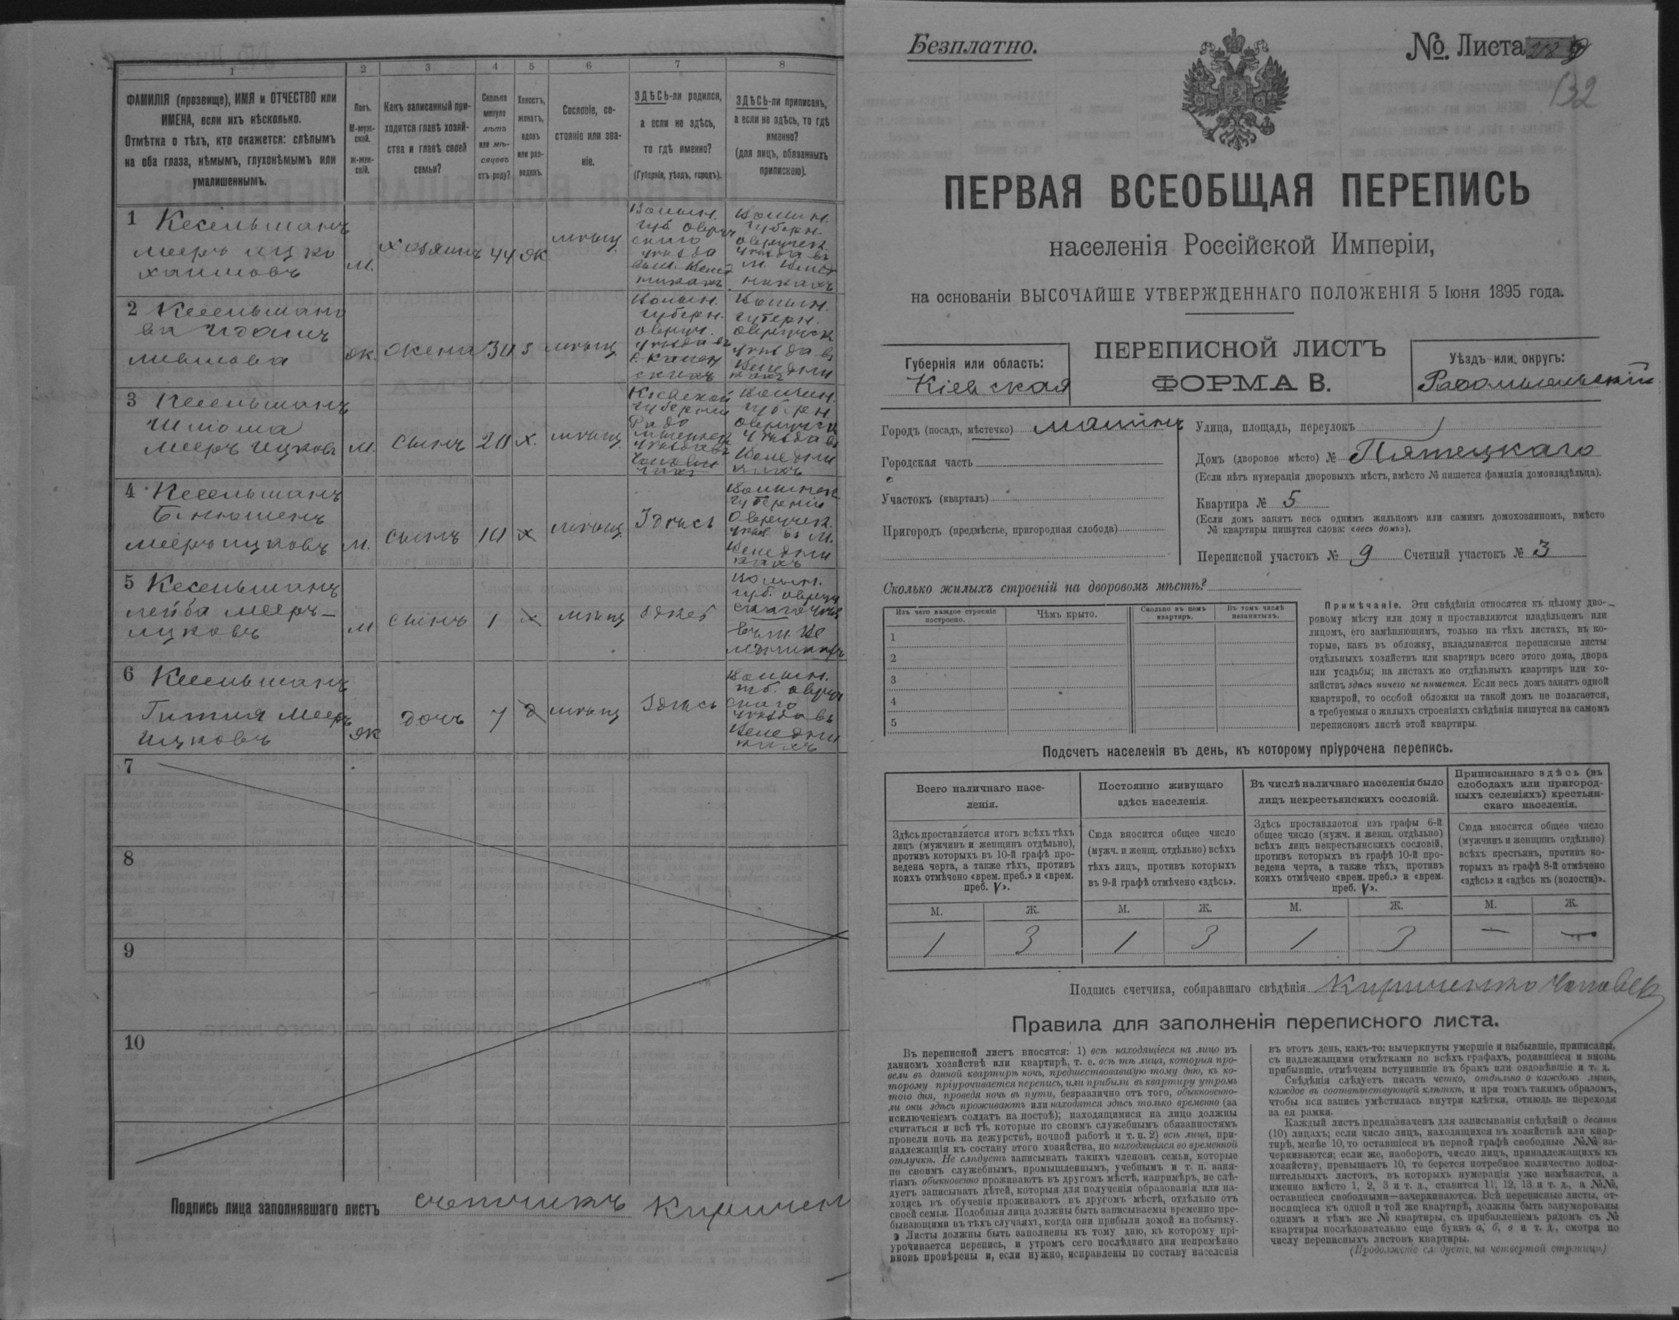 1
2
3
4
5
6
7
8
ФАМИЛІЯ (прозвище), ИМЯ и ОТЧЕСТВО или
ИМЕНА, если ихъ нѣсколько.
Отмѣтка о тѣхъ, кто окажется: слѣпымъ
на оба глаза, нѣмымъ, глухонѣмымъ или
умалишеннымъ.
Полъ.
М-муж-
ской.
ж-жен-
скій.
Какъ записанный при-
ходится главѣ хозяй-
ства и главѣ своей
семьи?
Сколько
минуло
лѣтъ
или мѣ-
сяцевъ
отъ роду?
Холостъ,
женатъ,
вдовъ
или раз-
веденъ.
Сословіе, со-
стояніе или зва-
ніе.
ЗДѢСЬ-ли родился,
а если не здѣсь,
то гдѣ именно?
(Губернія, уѣздъ, городъ).
ЗДѢСЬ-ли приписанъ,
а если не здѣсь, то гдѣ
именно?
(для лицъ, обязанныхъ
припискою).
1 Кесельманъ
Мееръ Ицко
Хаимовъ
М.
Хозяинъ
44
ж
мѣщ
Волын.
губ Овруч
скаго
уѣзда
Волын.
Губерн.
Овручск.
уѣзда въ
2 Кесельмано
ва
ж.
жена
мѣщ
Волын.
Губерн.
Овруч.
уѣзда въ
Волын.
Губерн.
Овручск
уѣзда въ
3 Кесельманъ
Шмома
Мееръ Ицковъ
М.
сынъ
20
х.
мѣщ.
Кіевской
Губерніи
Волын.
Губерн
Овручск
уѣзда въ
4 Кесельманъ
Мееръ Ицковъ
М.
сынъ
10
х
мѣщ
Здѣсь
Волынск
Губерніи
Овручск.
5 Кесельманъ
Лейба Мееръ-
Ицковъ
М
сынъ
1
х
мѣщ
Здѣсь
Волын.
губ. Овруч
скаго
6 Кесельманъ
Гитля Мееръ
Ицковъ
ж
дочь
7
д
мѣщ
Здѣсь
Волын.
губ. Овруч
скаго
уѣзда въ
7
8
9
10
Подпись лица заполнявшаго листъ счетчикъ
Безплатно.
№. Листа
132
ПЕРВАЯ ВСЕОБЩАЯ ПЕРЕПИСЬ
населенія Россійской Имперіи,
на основаніи ВЫСОЧАЙШЕ УТВЕРЖДЕННАГО ПОЛОЖЕНІЯ 5 Іюня 1895 года.
Губернія или область:
Кіевская
ПЕРЕПИСНОЙ ЛИСТЪ
ФОРМА В.
Уѣздъ или округъ:
Радомысльскій
Городъ (посадъ, мѣстечко) Малинъ
Городская часть
Участокъ (кварталъ)
Пригородъ (предмѣстье, пригородная слобода)
Улица, площадь, переулокъ
Домъ (дворовое мѣсто) № Пятецкаго
(Если нѣтъ нумераціи дворовыхъ мѣстъ, вмѣсто № пишется фамилія домовладѣльца).
Квартира № 5
(Если домъ занятъ весь однимъ жильцомъ или самимъ домохозяиномъ, вмѣсто
№ квартиры пишутся слова: «весь домъ»).
Переписной участокъ № 9 Счетный участокъ № 3
Сколько жилыхъ строеній на дворовомъ мѣстѣ?
Изъ чего каждое строеніе
построено.
Чѣмъ крыто.
Сколько въ немъ
квартиръ.
Въ томъ числѣ
незанятыхъ.
1
2
3
4
5
Примѣчаніе. Эти свѣдѣнія относятся къ цѣлому дво-
ровому мѣсту или дому и проставляются владѣльцемъ или
лицомъ, его замѣняющимъ, только на тѣхъ листахъ, въ ко-
торые, какъ въ обложку, вкладываются переписные листы
отдѣльныхъ хозяйствъ или квартиръ всего этого дома, двора
или усадьбы; на листахъ же отдѣльныхъ квартиръ или хо-
зяйствъ здѣсь ничего не пишется. Если весь домъ занятъ одной
квартирой, то особой обложки на такой домъ не полагается,
а требуемыя о жилыхъ строеніяхъ свѣдѣнія пишутся на самомъ
переписномъ листѣ этой квартиры.
Подсчетъ населенія въ день, къ которому пріурочена перепись.
Всего наличнаго насе-
ленія.
Здѣсь проставляется итогъ всѣхъ тѣхъ
лицъ (мужчинъ и женщинъ отдѣльно),
противъ которыхъ въ 10-й графѣ про-
ведена черта, а также тѣхъ, противъ
коихъ отмѣчено «врем. преб.» и «врем.
преб. V».
Постоянно живущаго
здѣсь населенія.
Сюда вносится общее число
(мужч. и женщ. отдѣльно) всѣхъ
тѣхъ лицъ, противъ которыхъ
въ 9-й графѣ отмѣчено «здѣсь».
Въ числѣ наличнаго населенія было
лицъ некрестьянскихъ сословій.
Здѣсь проставляется изъ графы 6-й
общее число (мужч. и женщ. отдѣльно)
всѣхъ лицъ некрестьянскихъ сословій,
противъ которыхъ въ графѣ 10-й про-
ведена черта, а также тѣхъ, противъ
коихъ отмѣчено «врем. преб.» и «врем.
преб. V».
Приписаннаго здѣсь (въ
слободахъ или пригород-
ныхъ селеніяхъ) крестьян-
скаго населенія.
Сюда вносится общее число
(мужчинъ и женщинъ отдѣльно)
всѣхъ крестьянъ, противъ ко-
торыхъ въ графѣ 8-й отмѣчено
«здѣсь» и «здѣсь къ (волости)».
М. Ж. М. Ж. М. Ж. М. Ж.
1 3 1 3 1 3 — —
Подпись счетчика, собиравшаго свѣдѣнія
Правила для заполненія переписного листа.
Въ переписной листъ вносятся: 1) всѣ находящіеся на лицо въ
данномъ хозяйствѣ или квартирѣ, т. е. всѣ тѣ лица, которыя про-
вели въ данной квартирѣ ночь, предшествовавшую тому дню, къ ко-
торому пріурочивается перепись, или прибыли въ квартиру утромъ
того дня, проведя ночь въ пути, безразлично отъ того, обыкновенно-
ли они здѣсь проживаютъ или находятся здѣсь только временно (за
исключеніемъ солдатъ на постоѣ); находящимися на лицо должны
считаться и всѣ тѣ, которые по своимъ служебнымъ обязанностямъ
провели ночь на дежурствѣ, ночной работѣ и т. п. 2) всѣ лица, при-
надлежащія къ составу этого хозяйства, но находящіяся во временной
отлучкѣ. Не слѣдуетъ записывать такихъ членовъ семьи, которые
по своимъ служебнымъ, промышленнымъ, учебнымъ и т. п. заня-
тіямъ обыкновенно проживаютъ въ другомъ мѣстѣ, напримѣръ, не слѣ-
дуетъ записывать дѣтей, которыя для полученія образованія или на-
ходясь въ обученіи проживаютъ въ другомъ мѣстѣ, отдѣльно отъ
своей семьи. Подобныя лица должны быть записываемы временно пре-
бывающими въ тѣхъ случаяхъ, когда они прибыли домой на побывку.
Листы должны быть заполнены къ тому дню, къ которому прі-
урочивается перепись, и утромъ сего послѣдняго дня непремѣнно
вновь провѣрены и, если нужно, исправлены по составу населенія
въ этотъ день, какъ-то: вычеркнуты умершіе и выбывшіе, приписаны,
съ надлежащими отмѣтками во всѣхъ графахъ, родившіеся и вновь
прибывшіе, отмѣчены вступившіе въ бракъ или овдовѣвшіе и т. д.
Свѣдѣнія слѣдуетъ писать четко, отдѣльно о каждомъ лицѣ,
каждое въ соотвѣтствующей клѣткѣ, и при томъ такимъ образомъ,
чтобы вся запись умѣстилась внутри клѣтки, отнюдь не переходя
за ея рамки.
Каждый листъ предназначенъ для записыванія свѣдѣній о десяти
(10) лицахъ; если число лицъ, находящихся въ хозяйствѣ или квар-
тирѣ, менѣе 10, то оставшіеся въ первой графѣ свободные №№ за-
черкиваются; если же, наоборотъ, число лицъ, принадлежащихъ къ
хозяйству, превышаетъ 10, то берется потребное количество допол-
нительныхъ листовъ, въ которыхъ нумерація уже измѣняется, а
именно вмѣсто 1, 2, 3 и т. д., ставится 11, 12, 13 и т. д., а №№,
оставшіеся свободными—зачеркиваются. Всѣ переписные листы, от-
носящіеся къ одной и той же квартирѣ, должны быть занумерованы
однимъ и тѣмъ же № квартиры, съ прибавленіемъ рядомъ съ №
квартиры послѣдовательно еще буквъ а, б, в и т. д., смотря по
числу переписныхъ листовъ квартиры.
(Продолженіе слѣдуетъ на четвертой страницѣ)